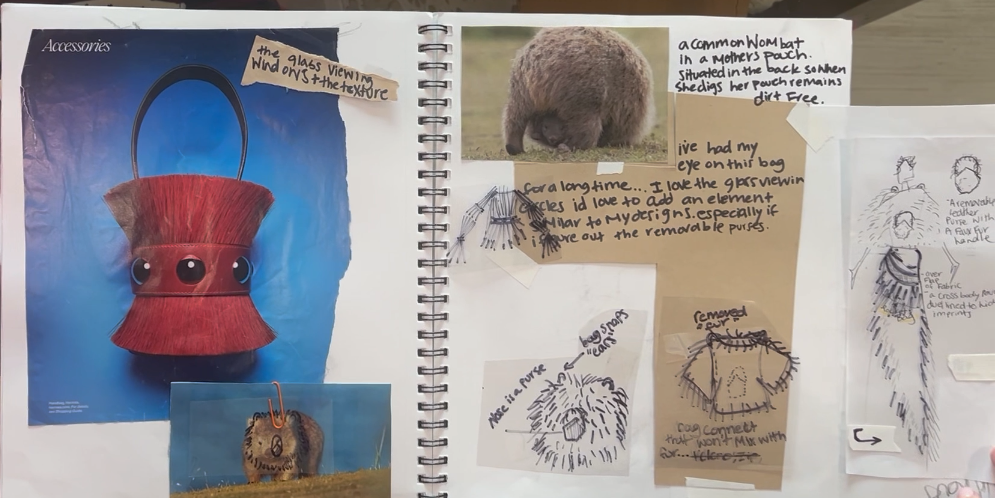 Accessories
the glass viewing
windows + the texture
a common Wombat
in a Mothers pouch.
situated in the back so when
she digs her pouch remains
dirt Free.
ive had my
eye on this bag
for a long time... I love the glass viewin
circles id love to add an element
Milar to My designs. especially if
i figure out the removable purses.
removed
"fur"
bag snaps
"ears"
Nose is a purse
Bag connect
that won't Mix with
fur...
"A removable
leather
Purse with
A Faux fur
handle
over
Flap
of Fabric
a cross body
imprints